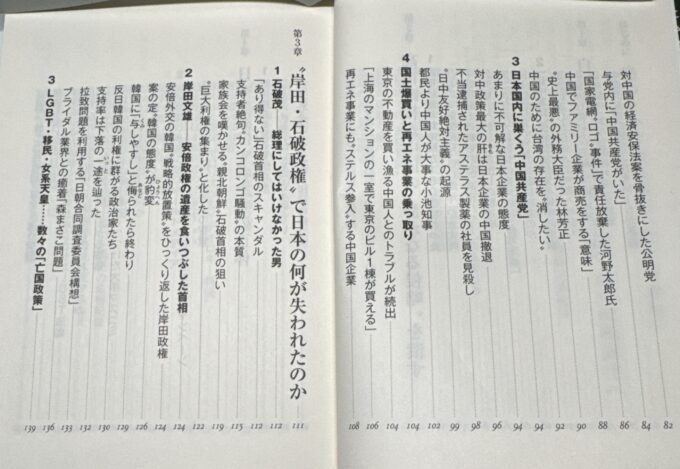 対中国の経済安保法案を骨抜きにした公明党 82
与党内に“中国共産党がいた” 84
「国家電網“ロゴ”事件」で責任放棄した河野太郎氏 86
中国でファミリー企業が商売をする「意味」 88
“史上最悪”の外務大臣だった林芳正 88
中国のために台湾の存在を“消したい” 90
3 日本国内に巣くう「中国共産党」 92
あまりに不可解な日本企業の態度 94
対中政策最大の肝は日本企業の中国撤退 94
不当逮捕されたアステラス製薬の社員を見殺し 96
“日中友好絶対主義”の起源 98
都民より中国人が大事な小池知事 99
4 国土爆買いと再エネ事業の乗っ取り 102
東京の不動産を買い漁る中国人とのトラブルが続出 104
「上海のマンションの一室で東京のビル1棟が買える」 104
再エネ事業にも“ステルス参入”する中国企業 108
第3章 “岸田・石破政権”で日本の何が失われたのか 111
1 石破茂――総理にしてはいけなかった男 112
「あり得ない」石破首相のスキャンダル 112
支持者絶句。“カンコロンゴ騒動”の本質 115
家族会を嘆かせる。“親北朝鮮”石破首相の狙い 119
“巨大利権の集まり”と化した 122
2 岸田文雄――安倍政権の遺産を食いつぶした首相 124
安倍外交の韓国“戦略的放置策”をひっくり返した岸田政権 124
案の定、“韓国の態度”が豹変 126
韓国に「与しやすし」と侮られたら終わり 129
反日韓国の利権に群がる政治家たち 130
支持率は下落の一途を辿った 132
拉致問題を利用する「日朝合同調査委員会構想」 133
ブライダル業界との癒着「森まさこ問題」 136
3 LGBT・移民・女系天皇……数々の「亡国政策」 139